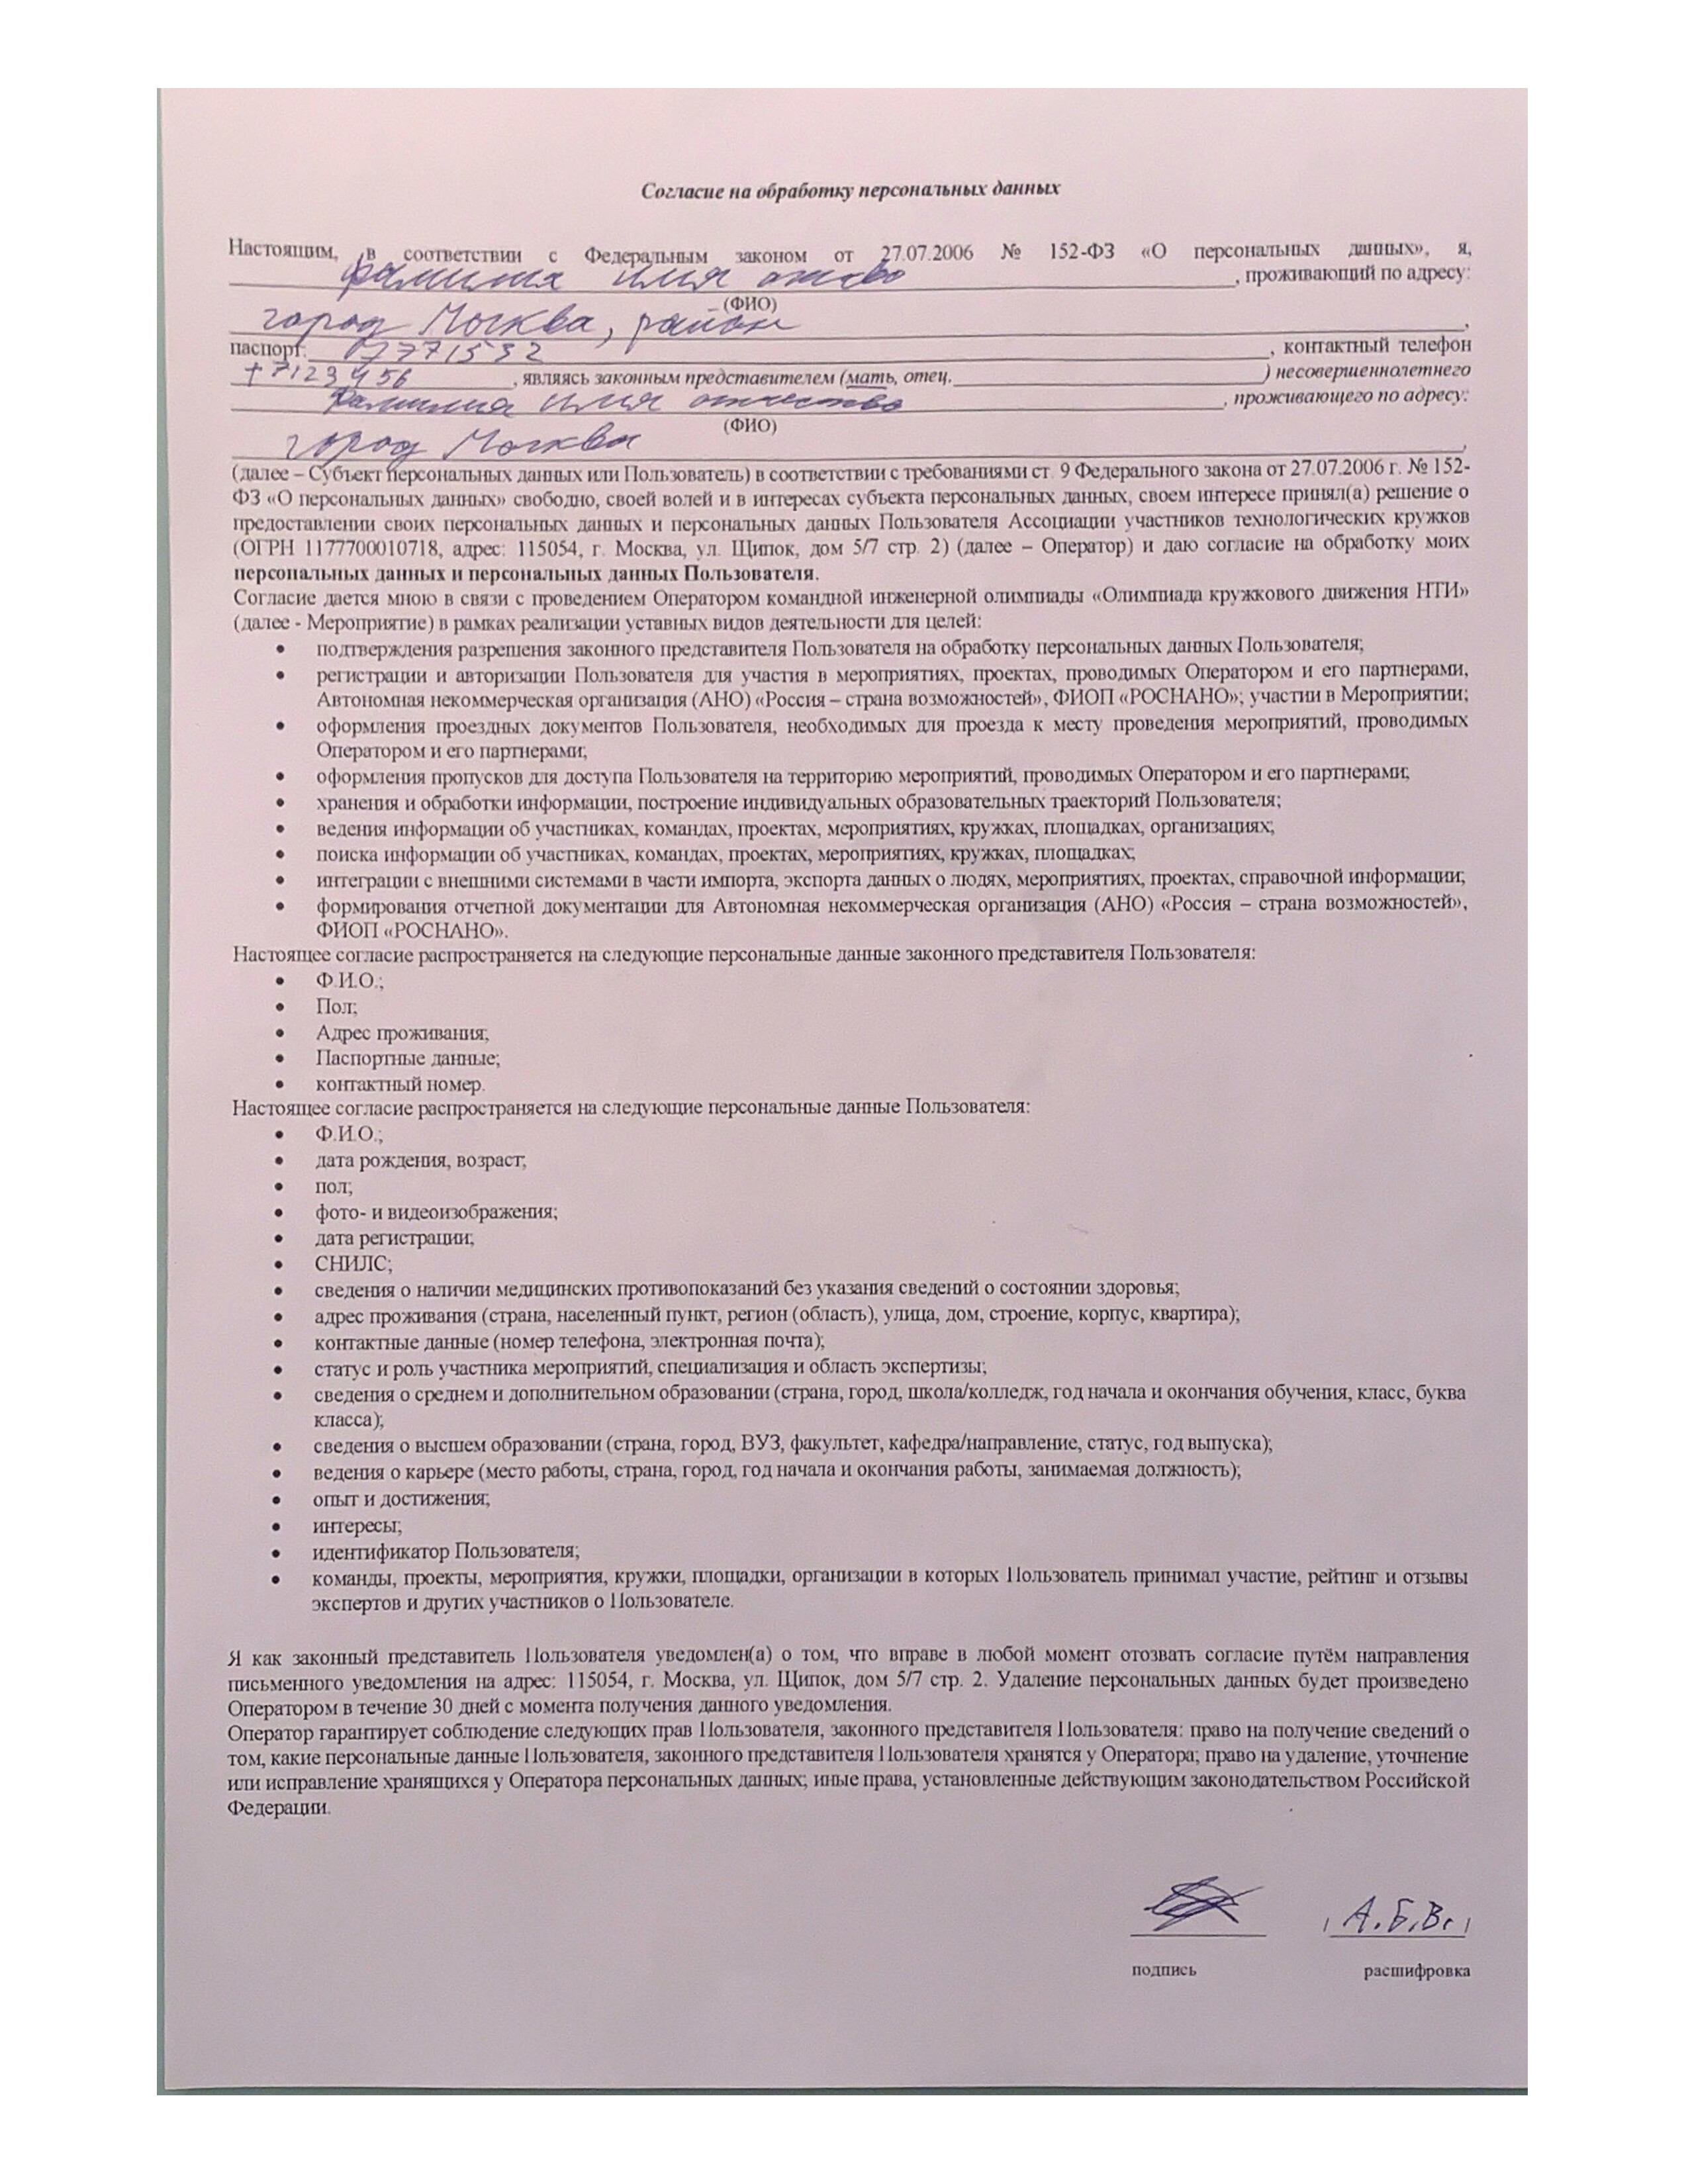 Согласие на обработку персональных данных
Настоящим, в соответствии с Федеральным законом от 27.07.2006 № 152-ФЗ «О персональных данных», я,
фамилия имя, проживающий по адресу:
(ФИО)
город Москва, район,
паспорт: 0771532, контактный телефон
+7123456, являясь законным представителем (мать, отец, ) несовершеннолетнего
фамилия имя отчество, проживающего по адресу:
(ФИО)
город Москва,
(далее – Субъект персональных данных или Пользователь) в соответствии с требованиями ст. 9 Федерального закона от 27.07.2006 г. № 152-
ФЗ «О персональных данных» свободно, своей волей и в интересах субъекта персональных данных, своем интересе принял(а) решение о
предоставлении своих персональных данных и персональных данных Пользователя Ассоциации участников технологических кружков
(ОГРН 1177700010718, адрес: 115054, г. Москва, ул. Щипок, дом 5/7 стр. 2) (далее – Оператор) и даю согласие на обработку моих
персональных данных и персональных данных Пользователя.
Согласие дается мною в связи с проведением Оператором командной инженерной олимпиады «Олимпиада кружкового движения НТИ»
(далее - Мероприятие) в рамках реализации уставных видов деятельности для целей:
• подтверждения разрешения законного представителя Пользователя на обработку персональных данных Пользователя;
• регистрации и авторизации Пользователя для участия в мероприятиях, проектах, проводимых Оператором и его партнерами,
Автономная некоммерческая организация (АНО) «Россия – страна возможностей», ФИОП «РОСНАНО»; участии в Мероприятии;
• оформления проездных документов Пользователя, необходимых для проезда к месту проведения мероприятий, проводимых
Оператором и его партнерами;
• оформления пропусков для доступа Пользователя на территорию мероприятий, проводимых Оператором и его партнерами;
• хранения и обработки информации, построение индивидуальных образовательных траекторий Пользователя;
• ведения информации об участниках, командах, проектах, мероприятиях, кружках, площадках, организациях;
• поиска информации об участниках, командах, проектах, мероприятиях, кружках, площадках;
• интеграции с внешними системами в части импорта, экспорта данных о людях, мероприятиях, проектах, справочной информации;
• формирования отчетной документации для Автономная некоммерческая организация (АНО) «Россия – страна возможностей»,
ФИОП «РОСНАНО».
Настоящее согласие распространяется на следующие персональные данные законного представителя Пользователя:
• Ф.И.О.;
• Пол;
• Адрес проживания;
• Паспортные данные;
• контактный номер.
Настоящее согласие распространяется на следующие персональные данные Пользователя:
• Ф.И.О.;
• дата рождения, возраст;
• пол;
• фото- и видеоизображения;
• дата регистрации;
• СНИЛС;
• сведения о наличии медицинских противопоказаний без указания сведений о состоянии здоровья;
• адрес проживания (страна, населенный пункт, регион (область), улица, дом, строение, корпус, квартира);
• контактные данные (номер телефона, электронная почта);
• статус и роль участника мероприятий, специализация и область экспертизы;
• сведения о среднем и дополнительном образовании (страна, город, школа/колледж, год начала и окончания обучения, класс, буква
класса);
• сведения о высшем образовании (страна, город, ВУЗ, факультет, кафедра/направление, статус, год выпуска);
• ведения о карьере (место работы, страна, город, год начала и окончания работы, занимаемая должность);
• опыт и достижения;
• интересы;
• идентификатор Пользователя;
• команды, проекты, мероприятия, кружки, площадки, организации в которых Пользователь принимал участие, рейтинг и отзывы
экспертов и других участников о Пользователе.
Я как законный представитель Пользователя уведомлен(а) о том, что вправе в любой момент отозвать согласие путём направления
письменного уведомления на адрес: 115054, г. Москва, ул. Щипок, дом 5/7 стр. 2. Удаление персональных данных будет произведено
Оператором в течение 30 дней с момента получения данного уведомления.
Оператор гарантирует соблюдение следующих прав Пользователя, законного представителя Пользователя: право на получение сведений о
том, какие персональные данные Пользователя, законного представителя Пользователя хранятся у Оператора; право на удаление, уточнение
или исправление хранящихся у Оператора персональных данных; иные права, установленные действующим законодательством Российской
Федерации.
/ А.Б.В. /
подпись расшифровка